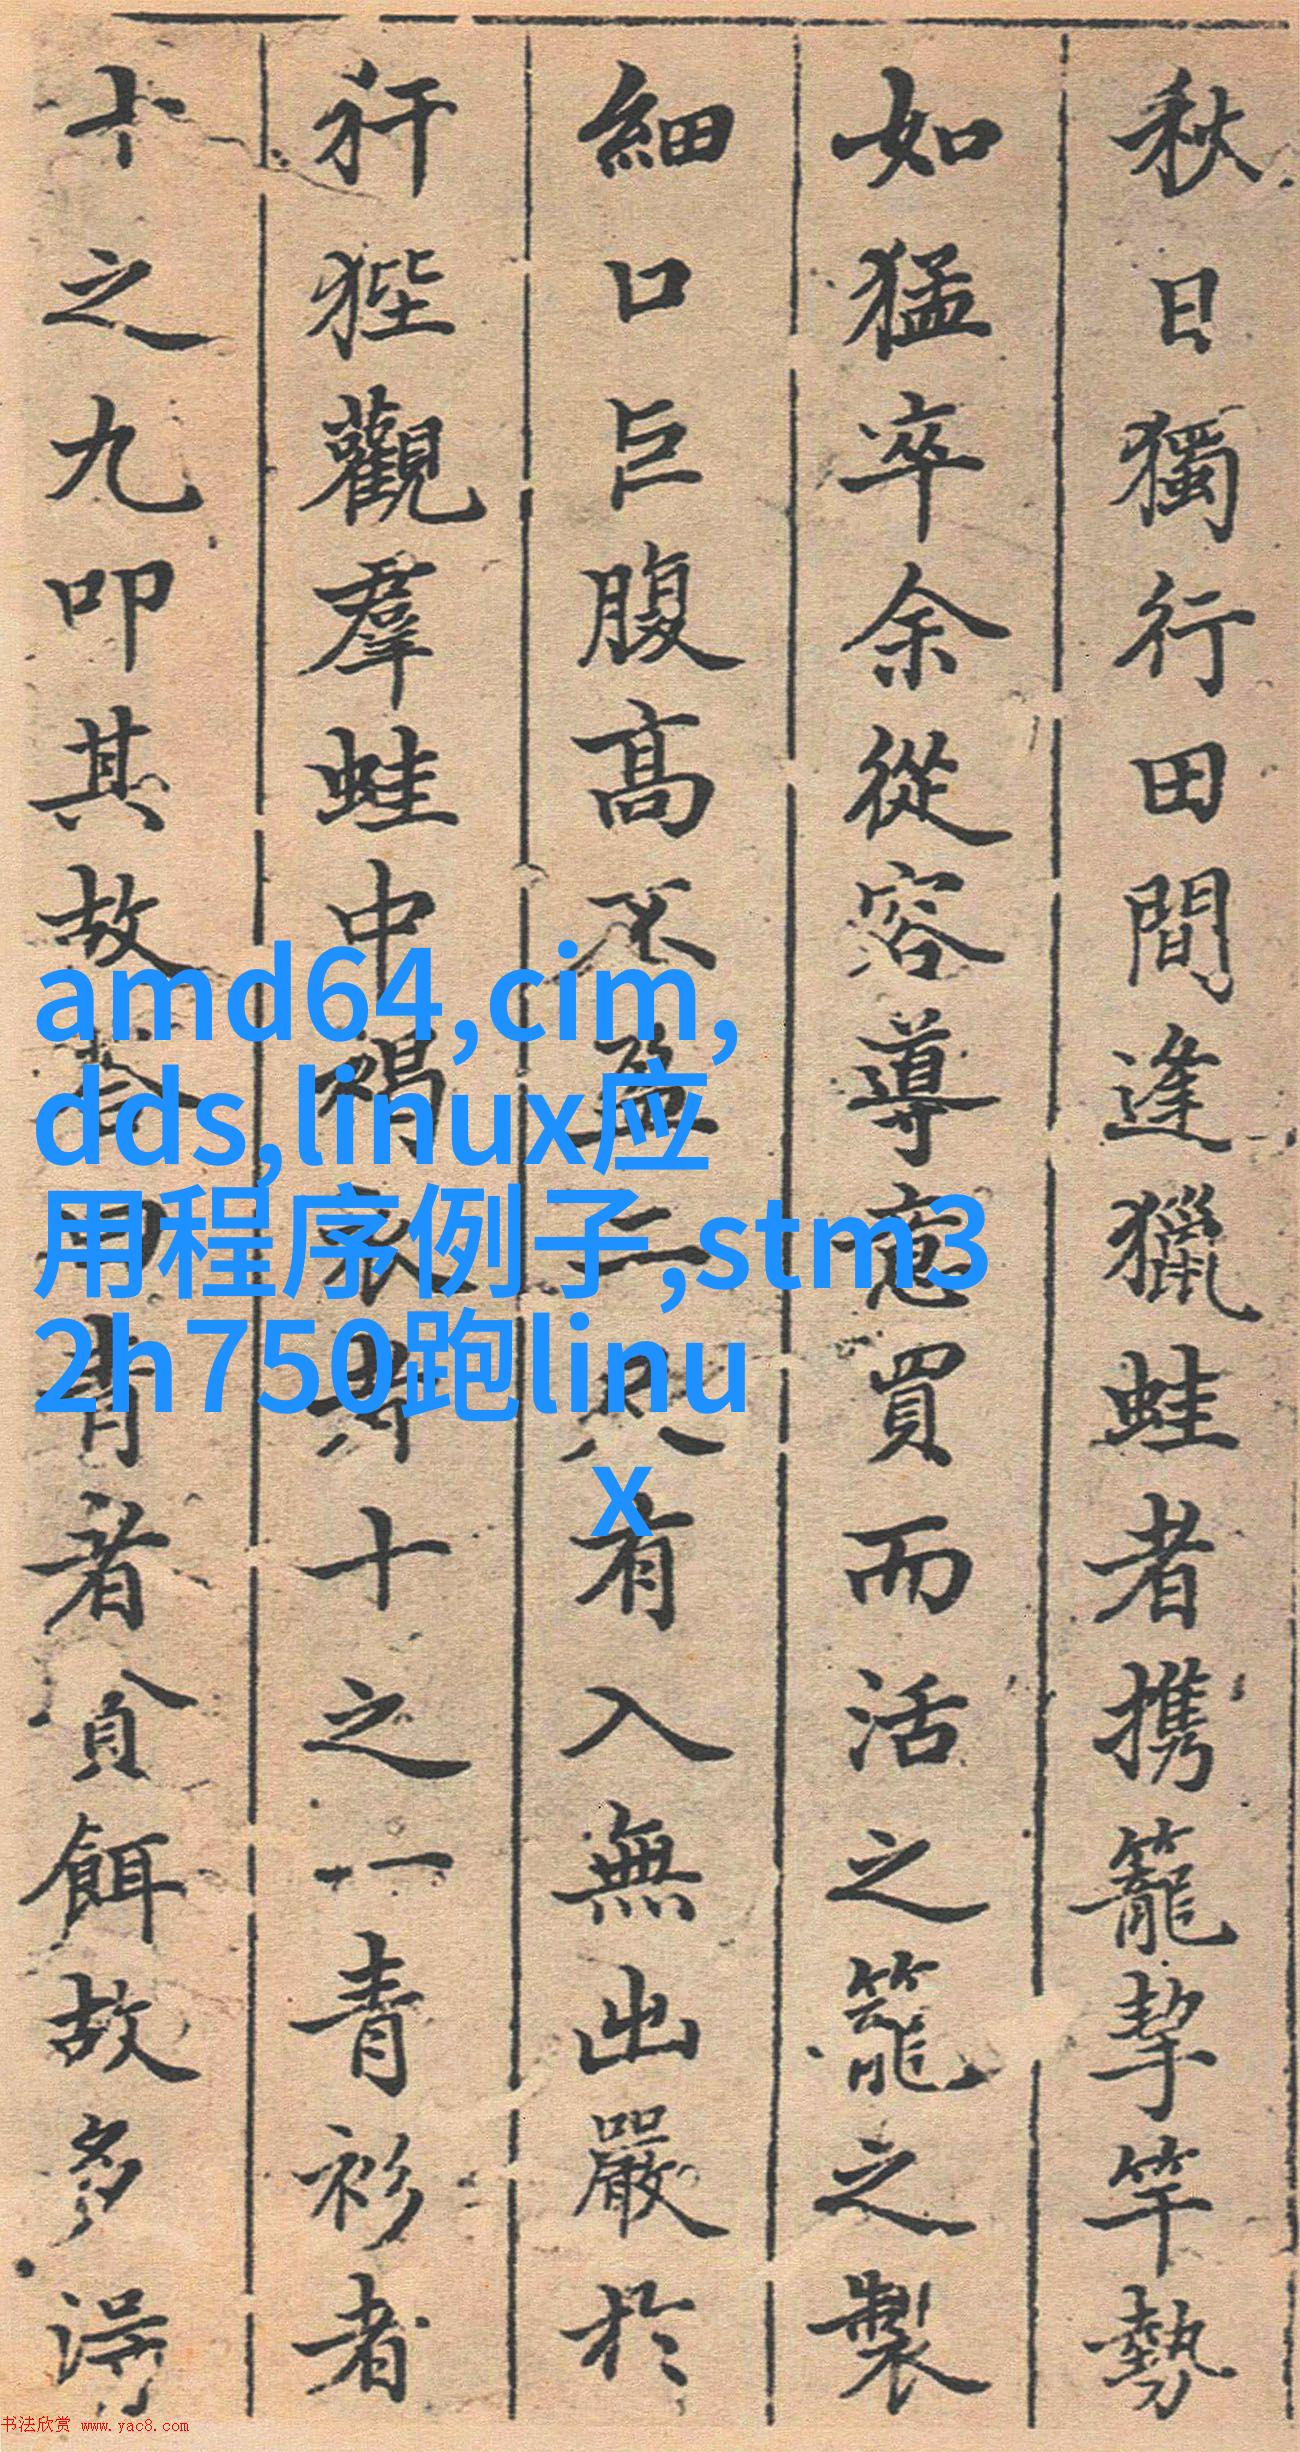 秋日獨行田間逢獵蛙者携籠挈竿勢
如猛卒余從容導意買而活之籠之製
細口巨腹高不盈二尺有入無出嚴於
犴狴觀羣蛙中褐衣者十之一青衫者
十之九叩其故答曰青者貪餌故多淂
amd64,cim,
dds,linux应
用程序例子,stm3
2h750跑linu
x
书法欣赏 www.yac8.com